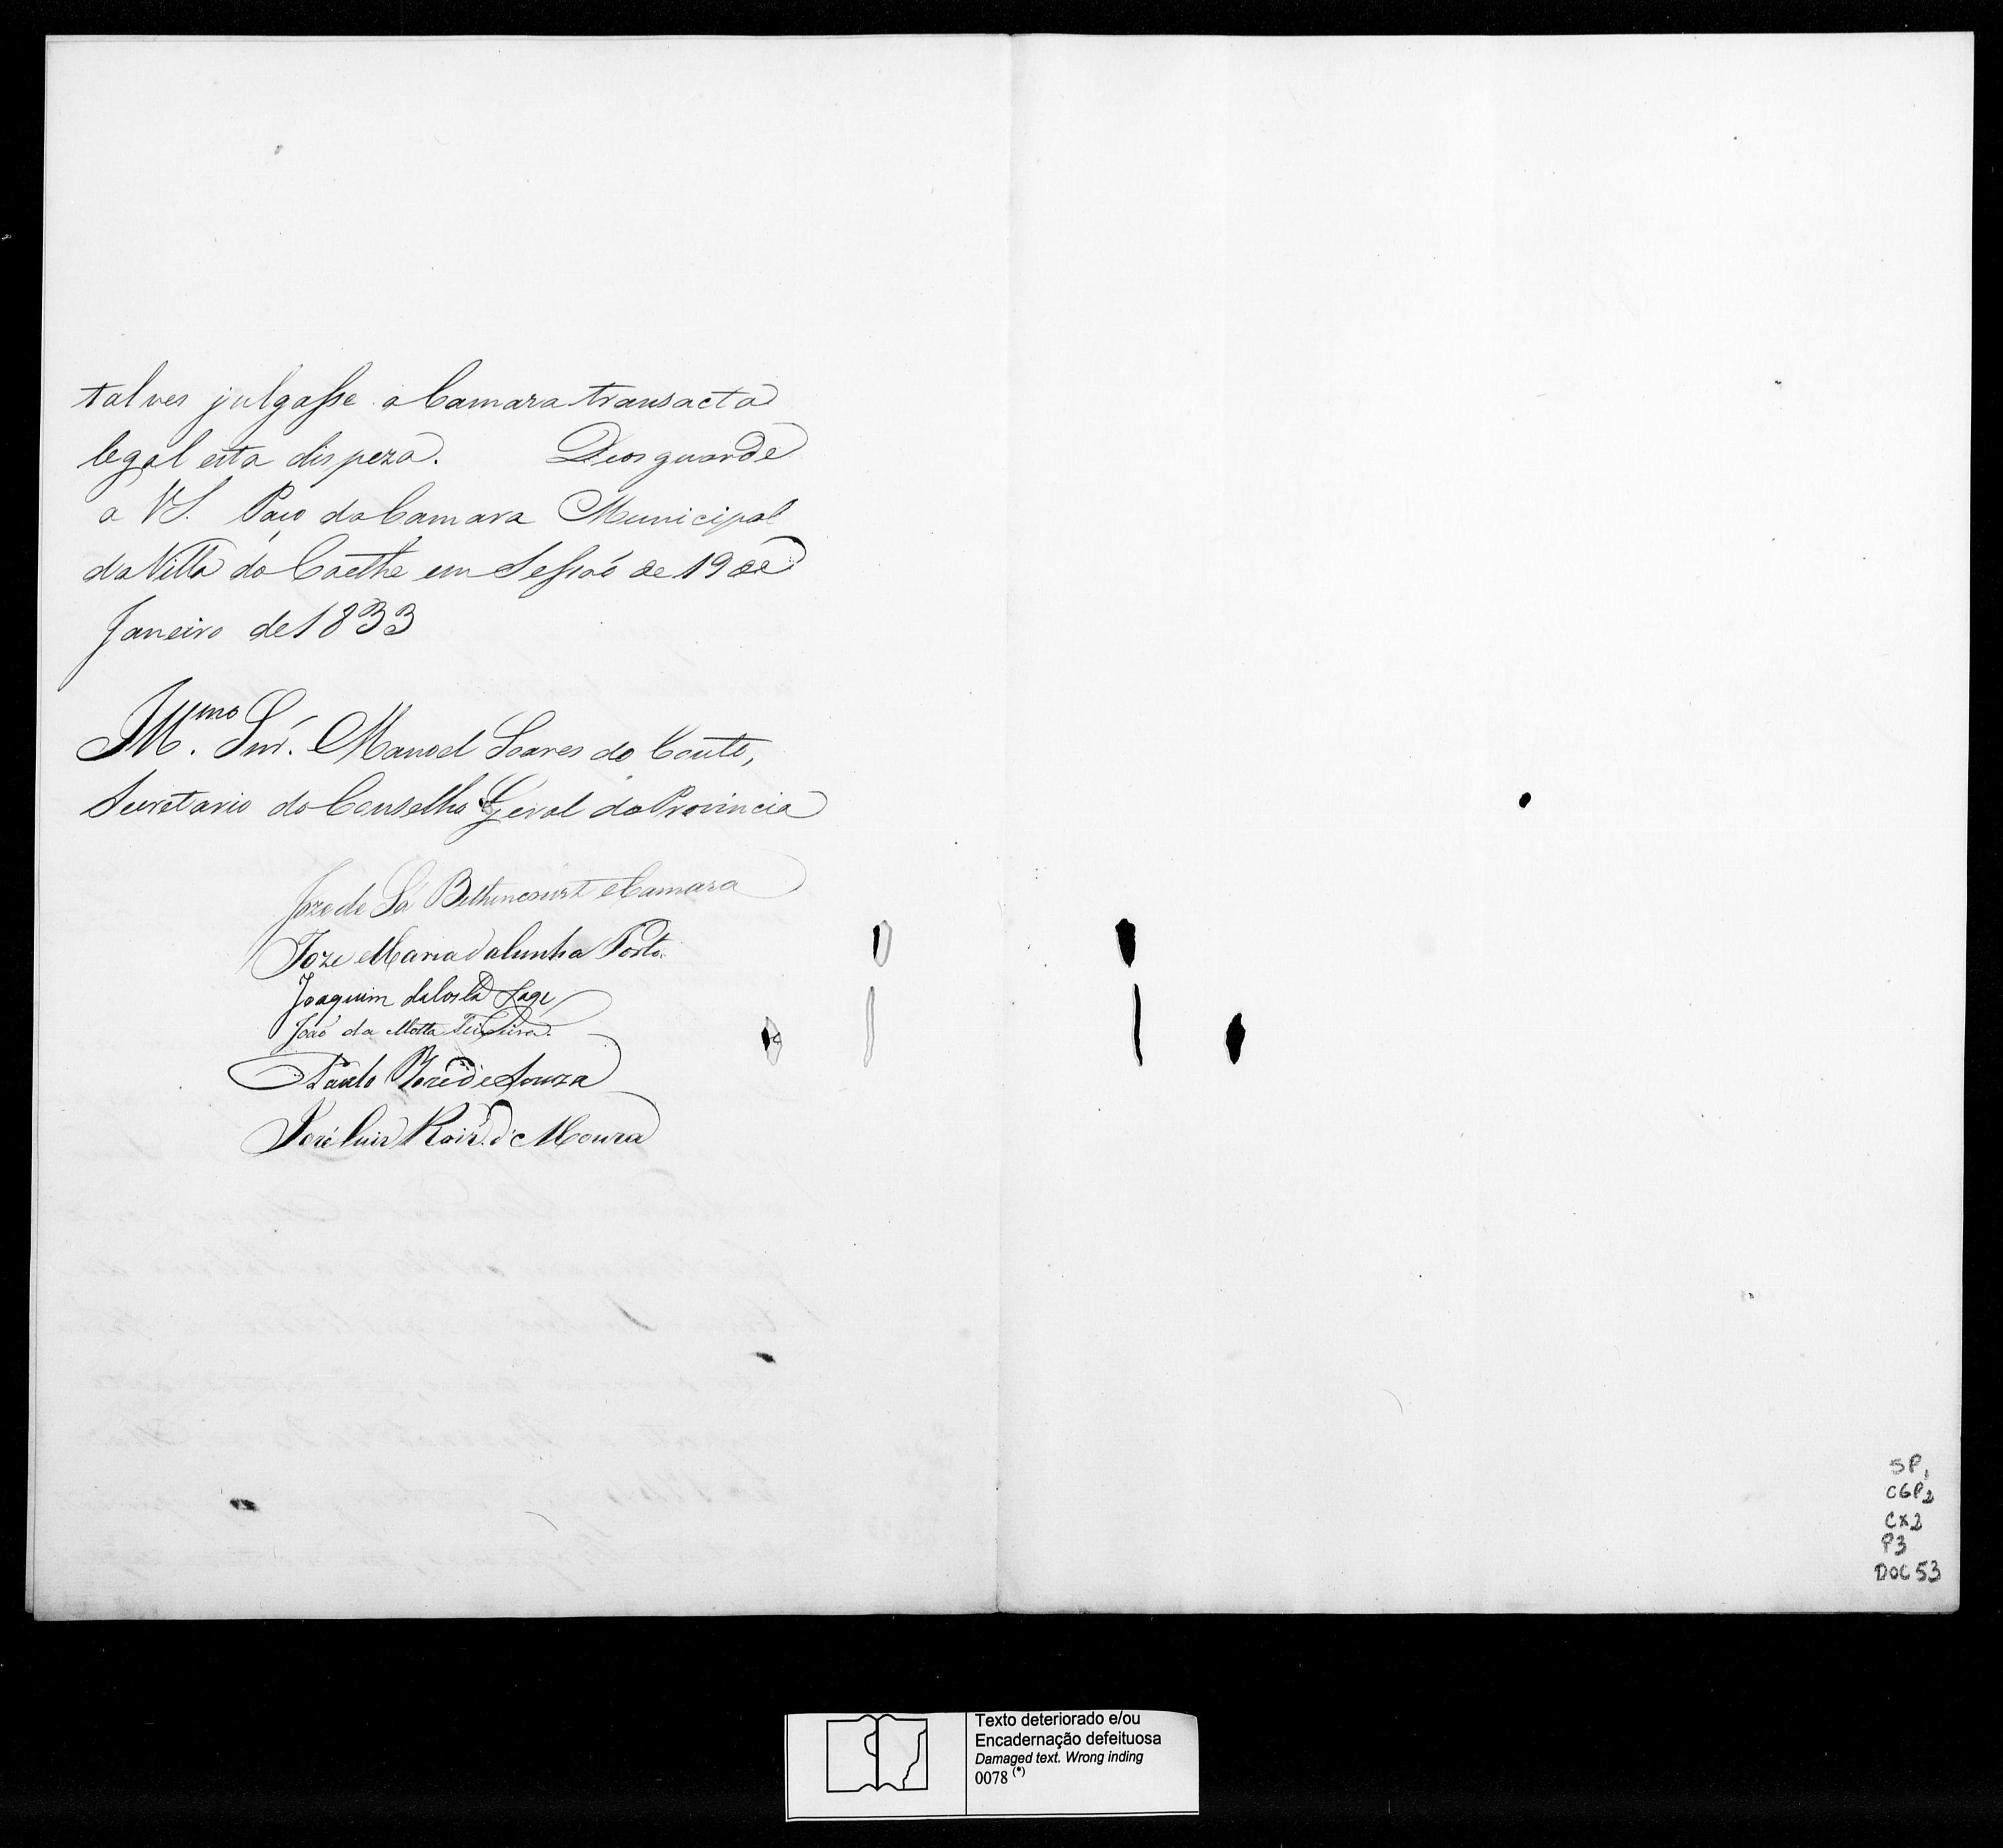 talves julgasse a Camara transacta
legal esta dispeza. Deos guarde
a VS. Paço da Camara Municipal
da Villa do Caethe em Sessaõ de 19 de
Janeiro de 1833
Illmo. Snr. Manoel Soares do Couto,
Secretario do Conselho Geral da Provincia
Joze de Sá Bethencourt e Camara
Joze Maria da Cunha Porto.
Joaquim da Costa Lage
Joaõ da Motta Teixeira.
Paulo José de Souza
José Luis Roiz. de Moura
SP1
CGP2
CX2
P3
DOC 53
Texto deteriorado e/ou
Encadernação defeituosa
Damaged text. Wrong inding
0078 (*)